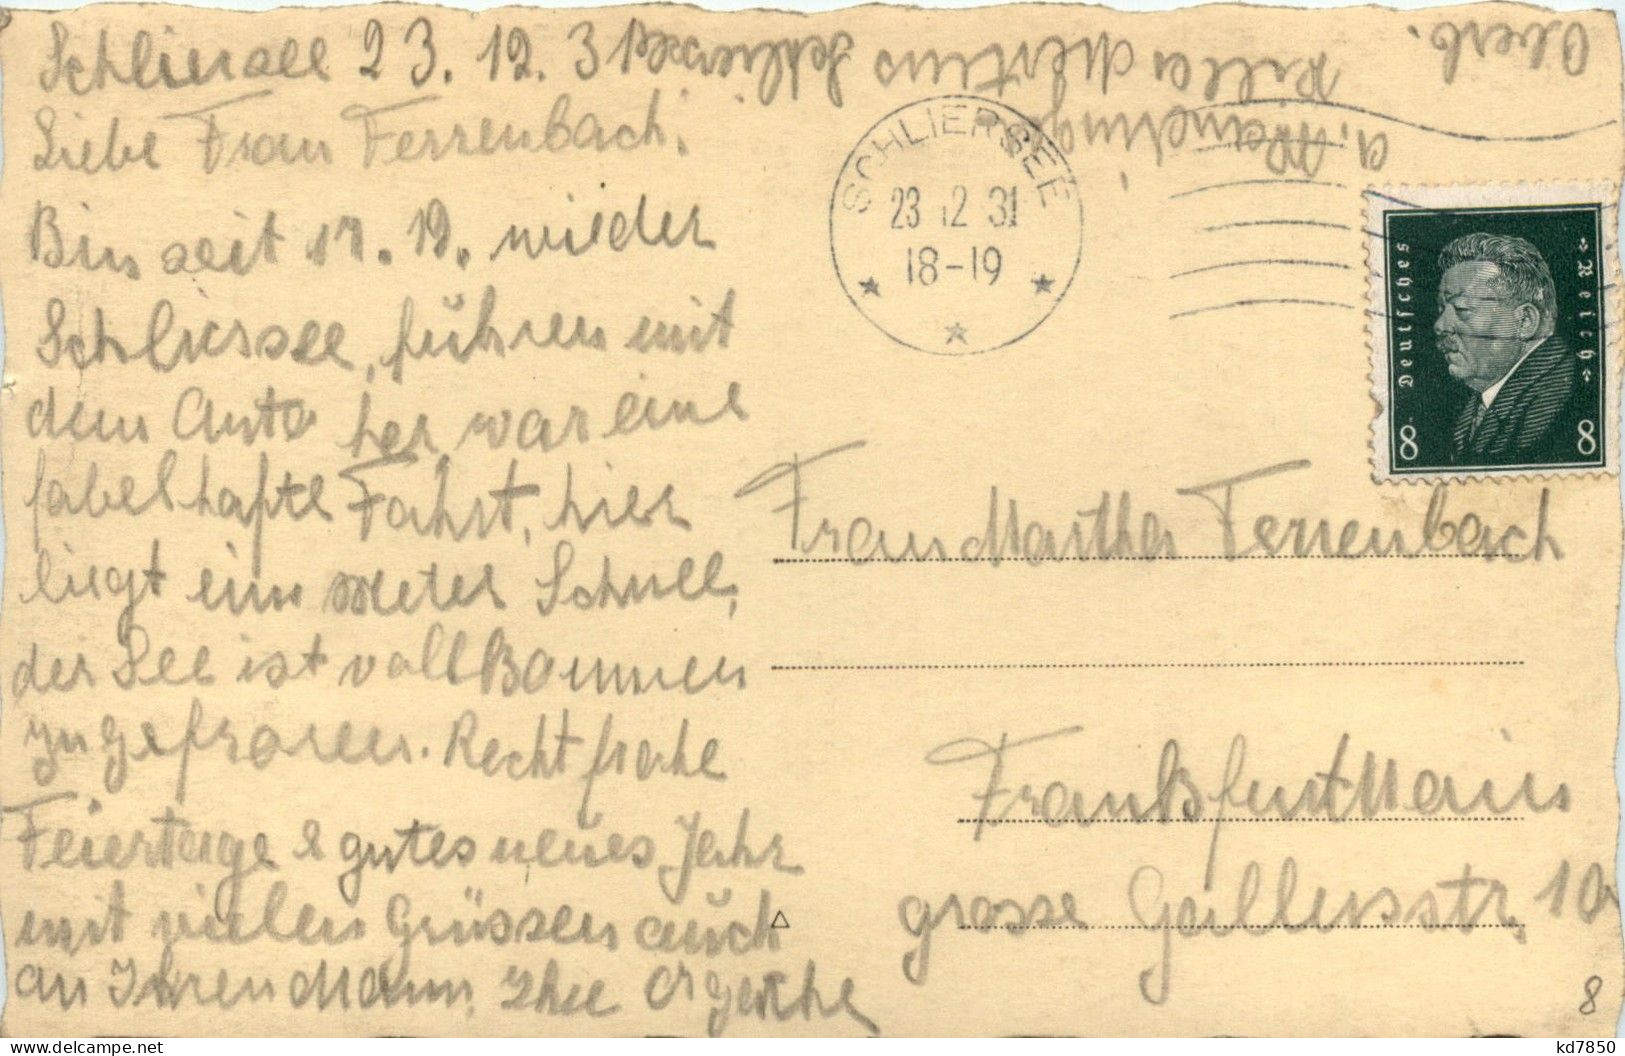 Schliersee 23.12.31
Liebe Frau Ferrenbach,
Bin seit 17.12. wieder
Schliersee, führen mit
dem Auto her war eine
fabelhafte Fahrt, hier
liegt ein Meter Schnee,
der See ist voll Baumen
zugefroren. Recht frohe
Feiertage & gutes neues Jahr
mit vielen Grüssen auch
an Ihren Mann, Ihre
Villa Mertens Schliersee
Oberb.
SCHLIERSEE
23 12 31
18-19
Deutsches Reich
8 8
Frau Martha Ferrenbach
Frankfurt Main
grosse Gallusstr. 10
8
kd7850